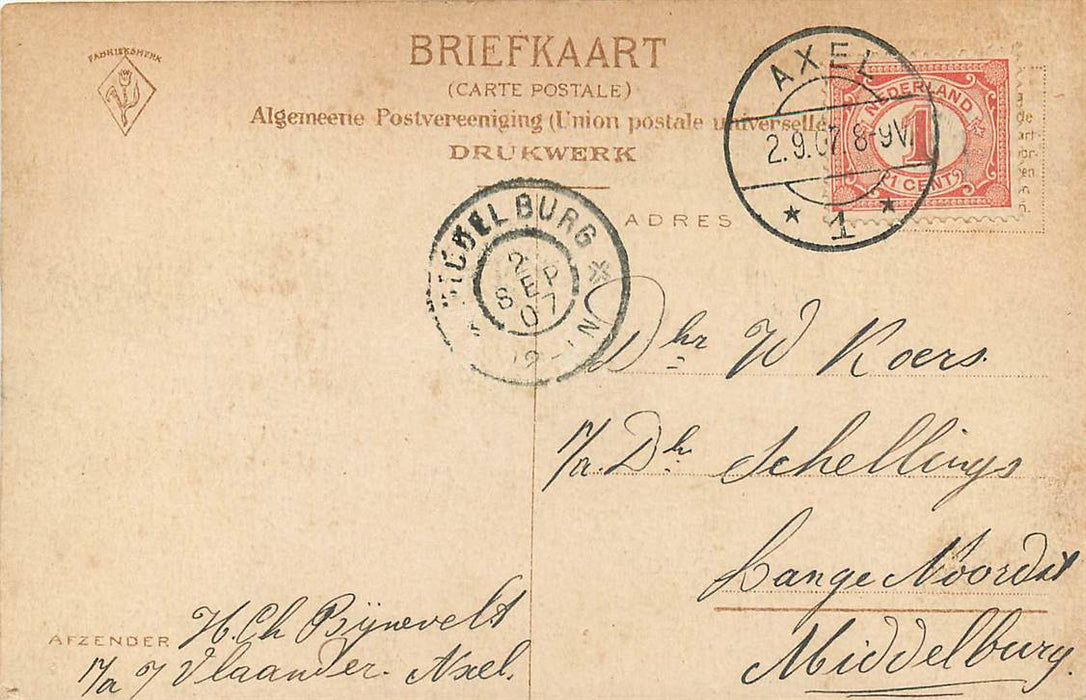 FABRIEKSMERK
BRIEFKAART
(CARTE POSTALE)
Algemeene Postvereeniging (Union postale universelle)
DRUKWERK
AXEL
2.9.07. 8-9V
1
NEDERLAND
1
1 CENT
MIDDELBURG
2 SEP
07
12-1N
ADRES
Dhr W Koers.
p/a. Dhr Schellings
Lange Noordst
Middelburg.
AFZENDER H. Ch Bijnevelt
p/a Vlaander. Axel.